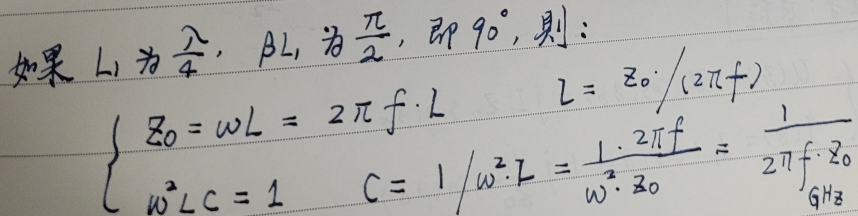 如果 L₁ 为 λ/4, βL₁ 为 π/2, 即 90°, 则:
Z₀ = ωL = 2πf·L L = Z₀·/(2πf)
ω²LC = 1 C = 1/ω²·L = 1·2πf/ω²·Z₀ = 1/2πf·Z₀
GHz